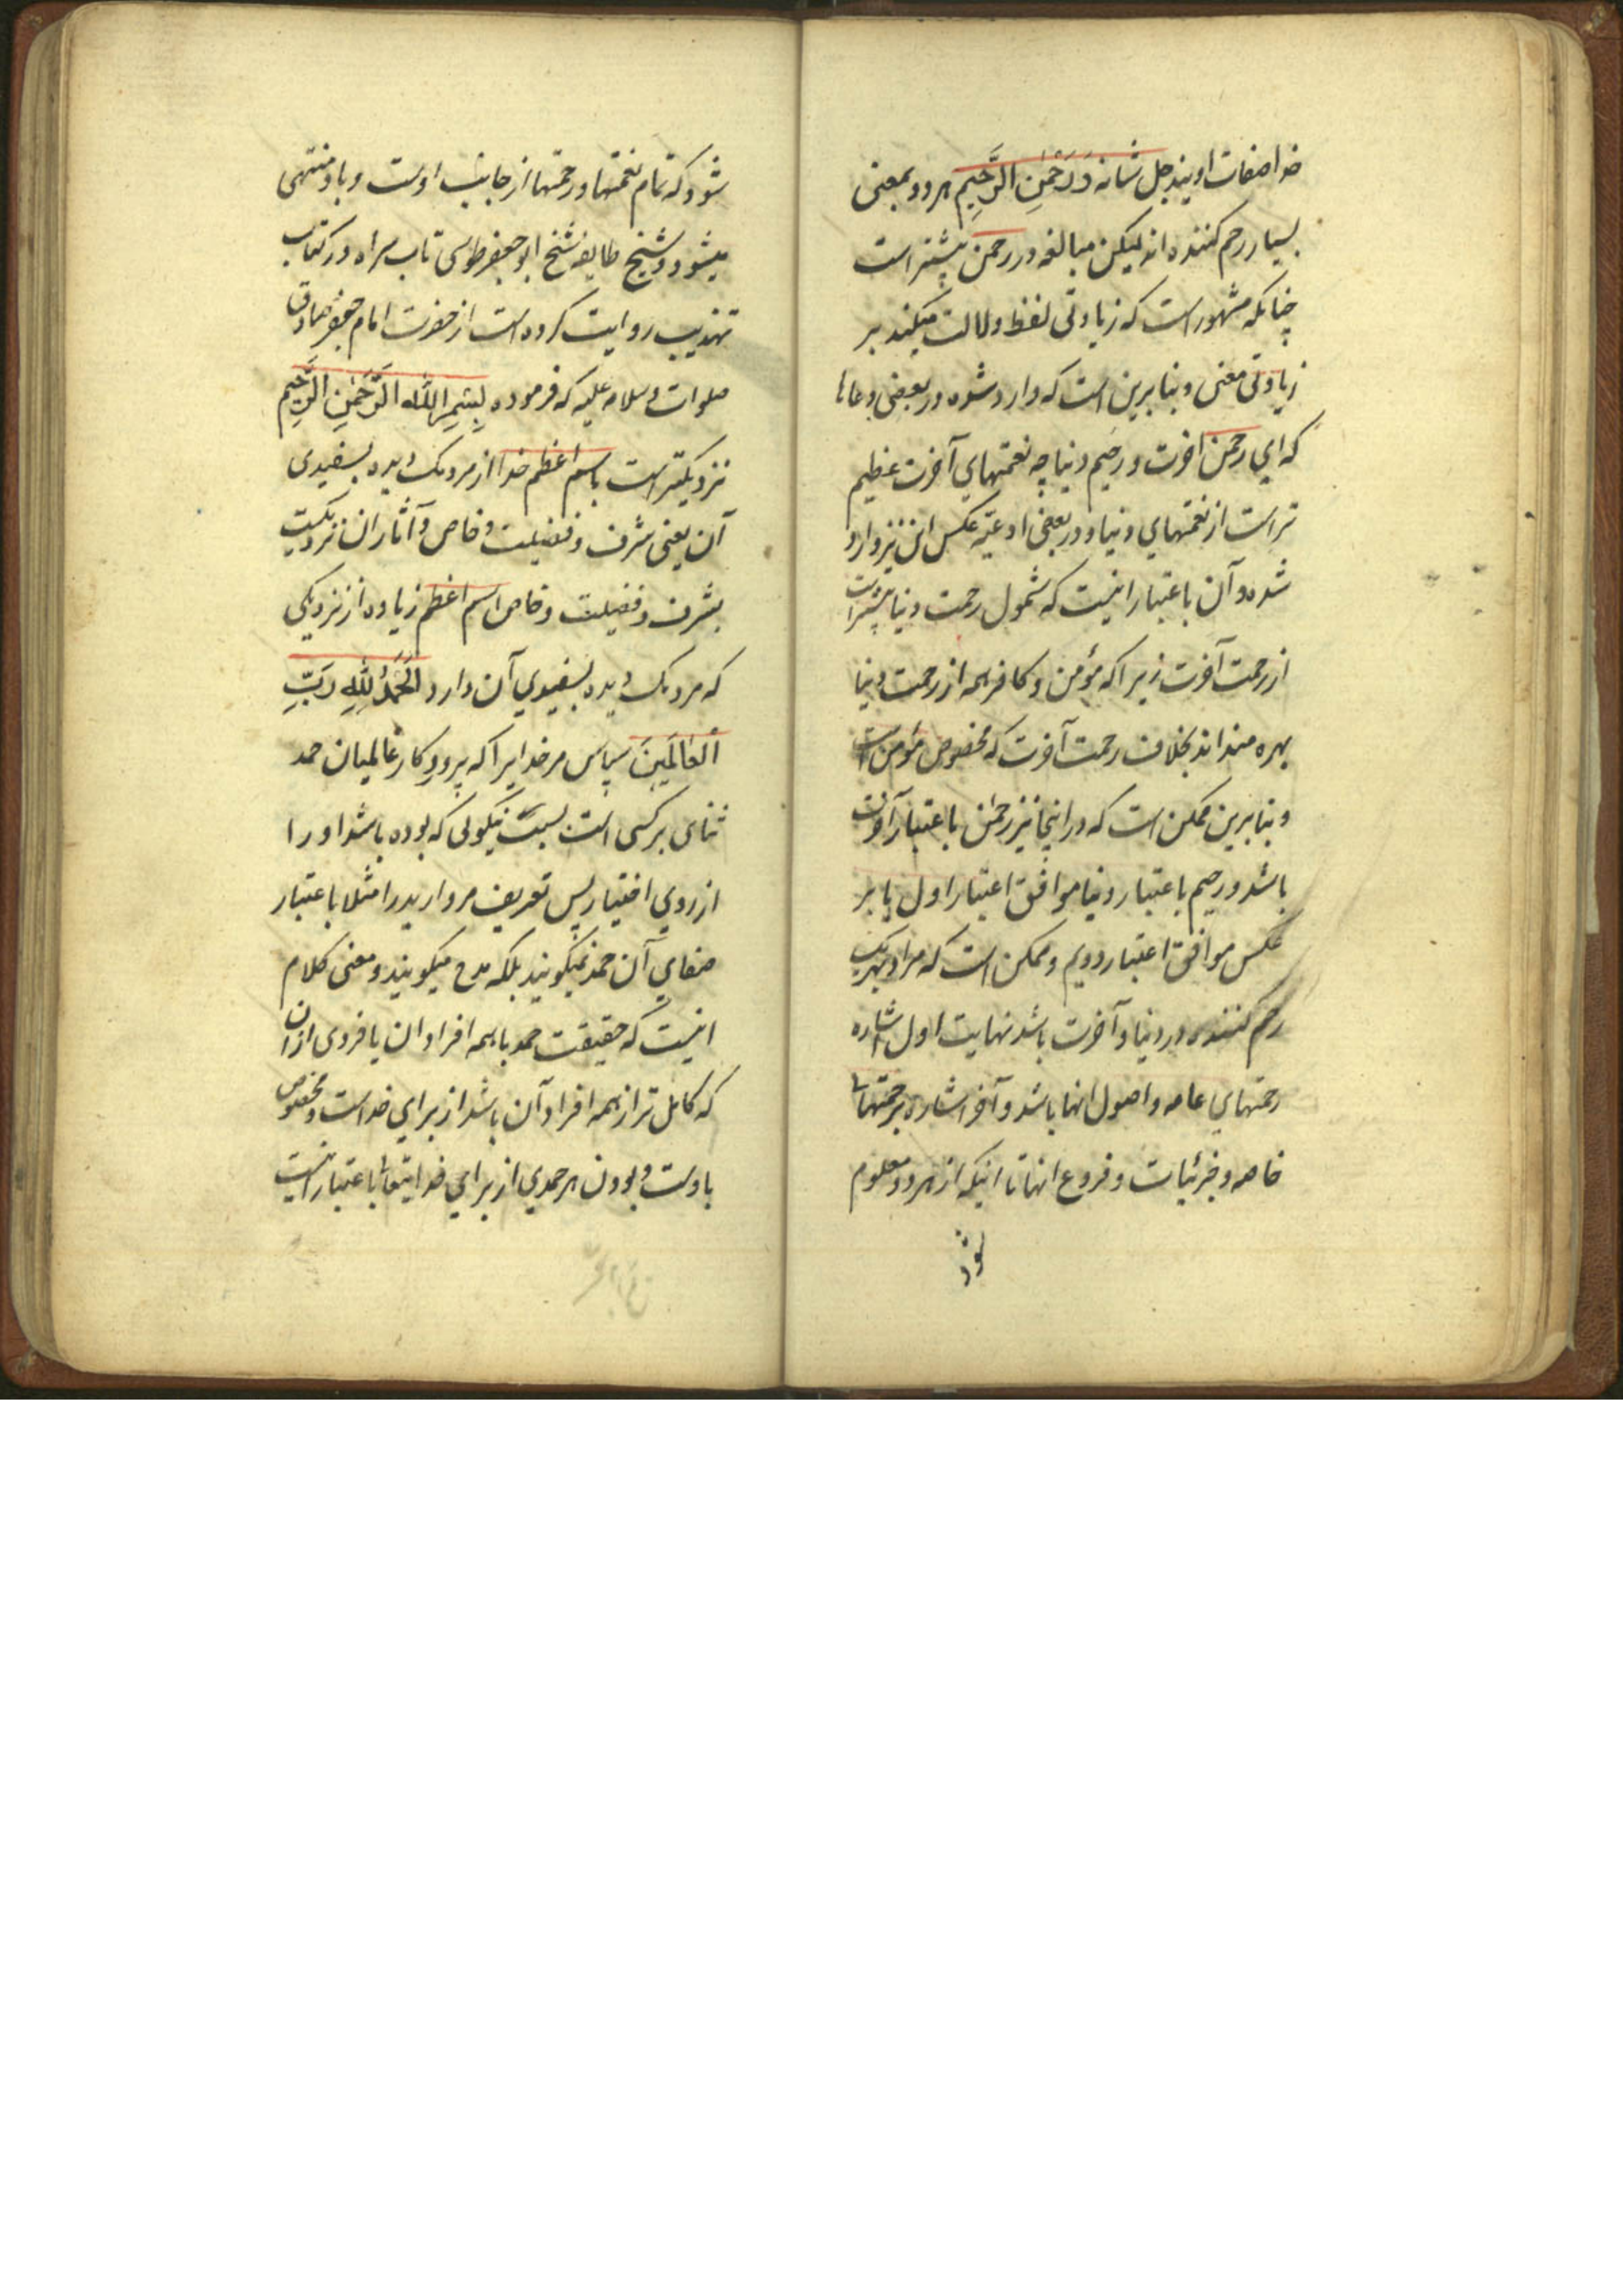 خدا صفات اویند جل شانه وَ رَحْمٰنِ الرَّحِیمِ هر دو بمعنی
بسیار رحم کننده اند لیکن مبالغه در رحمن بیشتر است
چنانکه مشهور است که زیادتی لفظ دلالت میکند بر
زیادتی معنی و بنابرین است که وارد شده در بعضی دعاها
که ای رحمن اخرت و رحیم دنیا چه نعمتهای آخرت عظیم
تر است از نعمتهای دنیا و در بعضی ادعیه عکس این نیز وارد
شده و آن باعتبار اینست که شمول رحمت دنیا بیشتر است
از رحمت آخرت زیرا که مؤمن و کافر همه از رحمت دنیا
بهره مند اند بخلاف رحمت آخرت که مخصوص مؤمن است
و بنابرین ممکن است که در اینجا نیز رحمن باعتبار آخرت
باشد و رحیم باعتبار دنیا موافق اعتبار اول یا بر
عکس موافق اعتبار دویم و ممکن است که مراد بهریک
رحم کننده در دنیا و آخرت باشد نهایت اول اشاره
رحمتهای عامه و اصول انها باشد و آخر اشاره برحمتهای
خاصه و جزئیات و فروع انها تا اینکه از هر دو معلوم
شود
شود که تمام نعمتها و رحمتها از جانب اوست و باو منتهی
میشود و شیخ طایفه شیخ ابو جعفر طوسی تاب سراه در کتاب
تهذیب روایت کرده است از حضرت امام جعفر صادق
صلوات و سلامه علیه که فرموده بِسْمِ اللّٰهِ الرَّحْمٰنِ الرَّحِیمِ
نزدیکتر است باسم اعظم خدا از مردمک دیده بسفیدی
آن یعنی شرف و فضیلت و خاص و آثار ان نزدیکست
بشرف و فضیلت و خاص اسم اعظم زیاده از نزدیکی
که مردمک دیده بسفیدی آن دارد اَلْحَمْدُ لِلّٰهِ رَبِّ
الْعٰالَمِینَ سپاس مر خدایرا که پروردکار عالمیان حمد
ثنای بر کسی است بسبب نیکوئی که بوده باشد او را
از روی اختیار پس تعریف مروارید را مثلا باعتبار
صفای آن حمد نمیکویند بلکه مدح میکویند و معنی کلام
اینست که حقیقت حمد با همه افراد ان یا فردی از ان
که کامل تر از همه افراد آن باشد از برای خداست و مخصوص
باوست و بودن هر حمدی از برای خدایتعالی باعتبار اینست